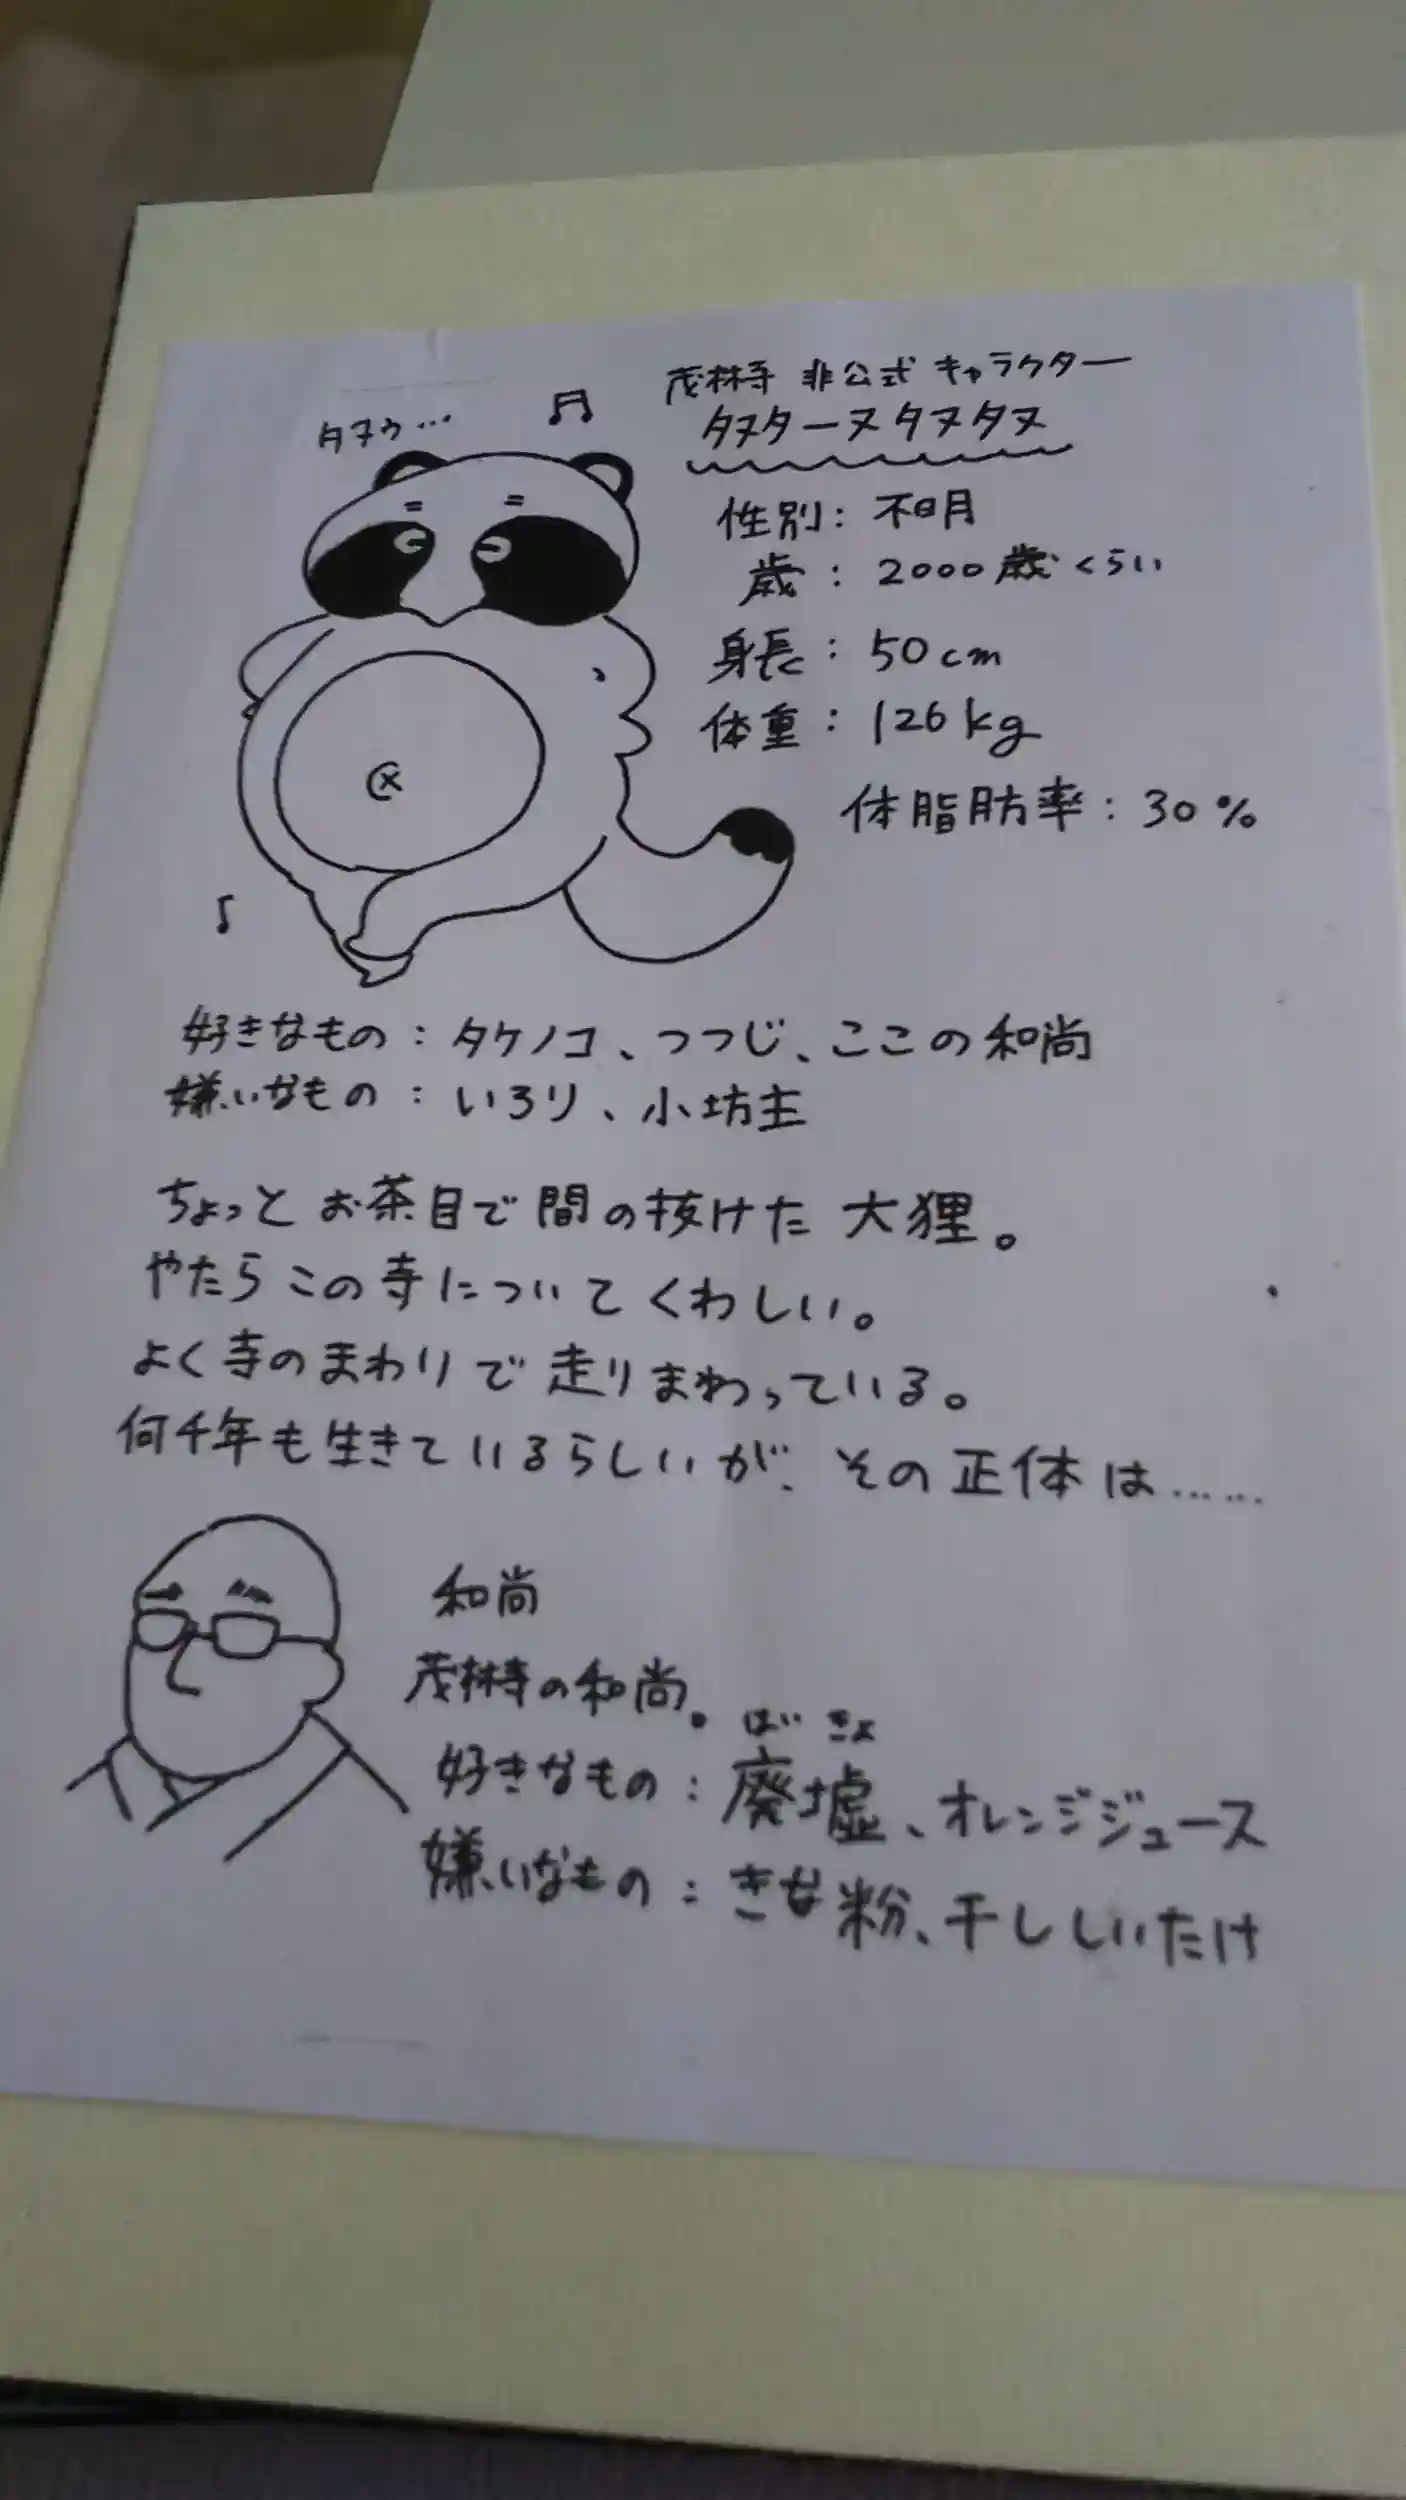 茂林寺 非公式 キャラクター
タヌゥ…
タヌターヌタヌタヌ
性別: 不明
歳: 2000歳くらい
身長: 50cm
体重: 126kg
体脂肪率: 30%
好きなもの: タケノコ、つつじ、ここの和尚
嫌いなもの: いろり、小坊主
ちょっとお茶目で間の抜けた大狸。
やたらこの寺についてくわしい。
よく寺のまわりで走りまわっている。
何千年も生きているらしいが、その正体は……
和尚
茂林寺の和尚。
ばい きょ
好きなもの: 廃墟、オレンジジュース
嫌いなもの: きな粉、干ししいたけ